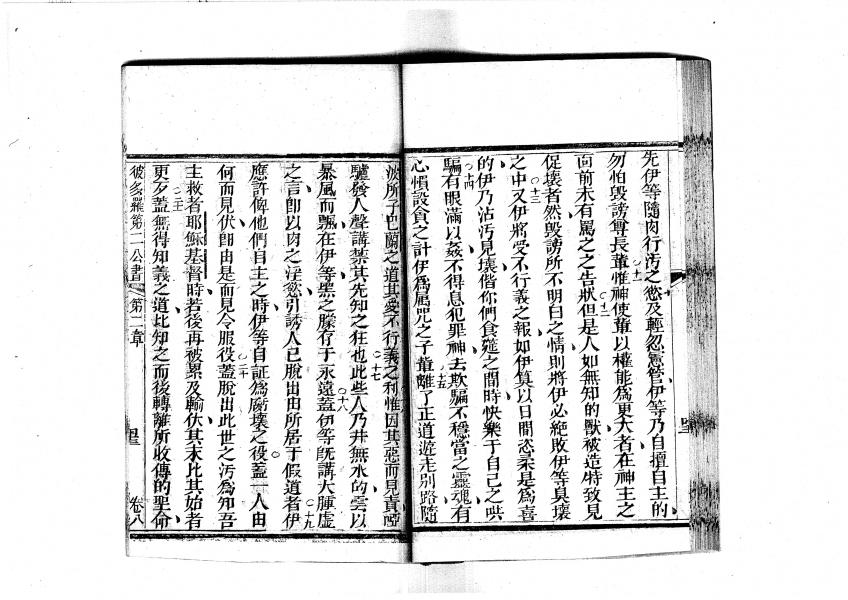 先伊等隨肉行污之慾及輕忽憲管伊等乃自擅自主的
勿怕毀謗尊長輩十一惟神使輩以權能爲更大者在神主之
面前未有罵之之告狀十二但是人如無知的獸被造特致見
促壞者然毀謗所不明白之情則將伊必絶敗伊等臭壞
之中十三又伊將受不行義之報如伊算以日間恣柔是爲喜
的伊乃沾污見壞偕你們食筵之間時快樂于自己之哄
騙十四有眼滿以姦不得息犯罪神去欺騙不穩當之靈魂有
心慣設貪之計伊爲属咒之子輩十五離了正道遊走别路隨
波所子巴蘭之道其愛不行義之利十六惟因其惡而見責啞
驢發人聲講禁其先知之狂也十七此些人乃井無水的雲以
暴風而飄在伊等黑之朦存于永遠十八蓋伊等既講大腫虛
之言即以肉之淫慾引誘人已脫出由所居于假道者十九伊
應許俾他們自主之時伊等自証爲廢壞之役蓋一人由
何而見伏即由是而見令服役二十蓋脫出此世之污爲知吾
主救者耶穌基督時若後再被累及輸伏其末比其始者
更歹二一蓋無得知義之道比知之而後轉離所收傳的聖命
彼多羅第二公書 第二章 卷八